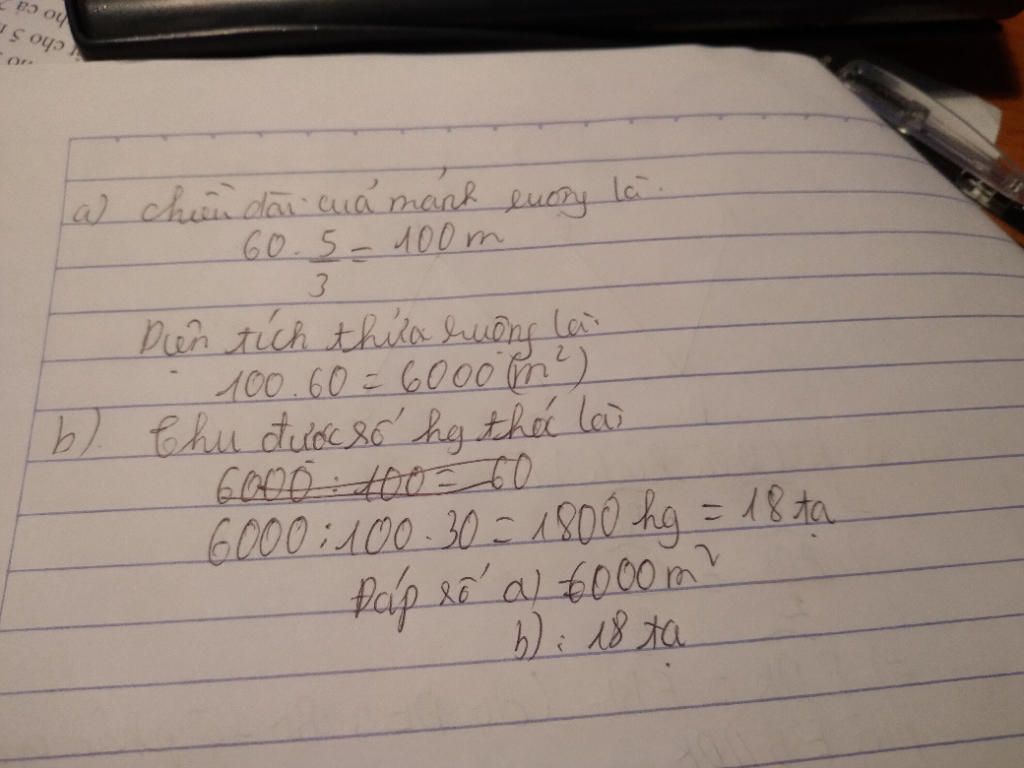 ho cả
t cho 5
a) chiều dài cuả mảnh ruộng là.
60 . 5/3 = 100 m
Diện tích thửa ruộng là:
100 . 60 = 6000 (m²)
b) Thu được số kg thóc là:
6000 : 100 = 60
6000 : 100 . 30 = 1800 kg = 18 tạ
Đáp số a) 6000 m²
b) : 18 tạ